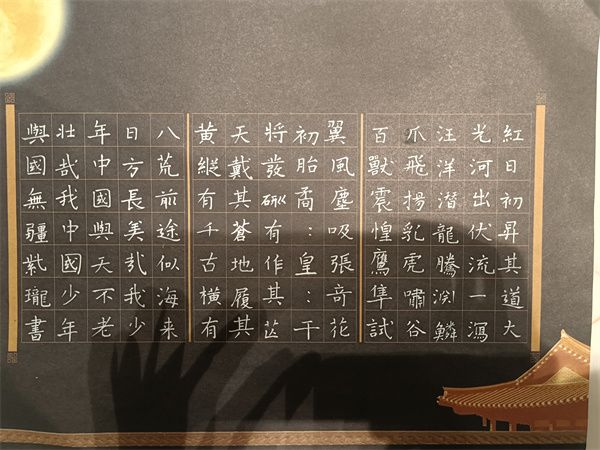 紅日初昇其道大
光河出伏流一瀉
汪洋潜龍騰渊鱗
爪飛揚乳虎嘯谷
百獸震惶鷹隼試
翼風塵吸張奇花
初胎矞：皇：干
将發硎有作其芒
天戴其蒼地履其
黄縱有千古横有
八荒前途似海来
日方長美哉我少
年中國與天不老
壮哉我中國少年
與國無疆紫瓏書